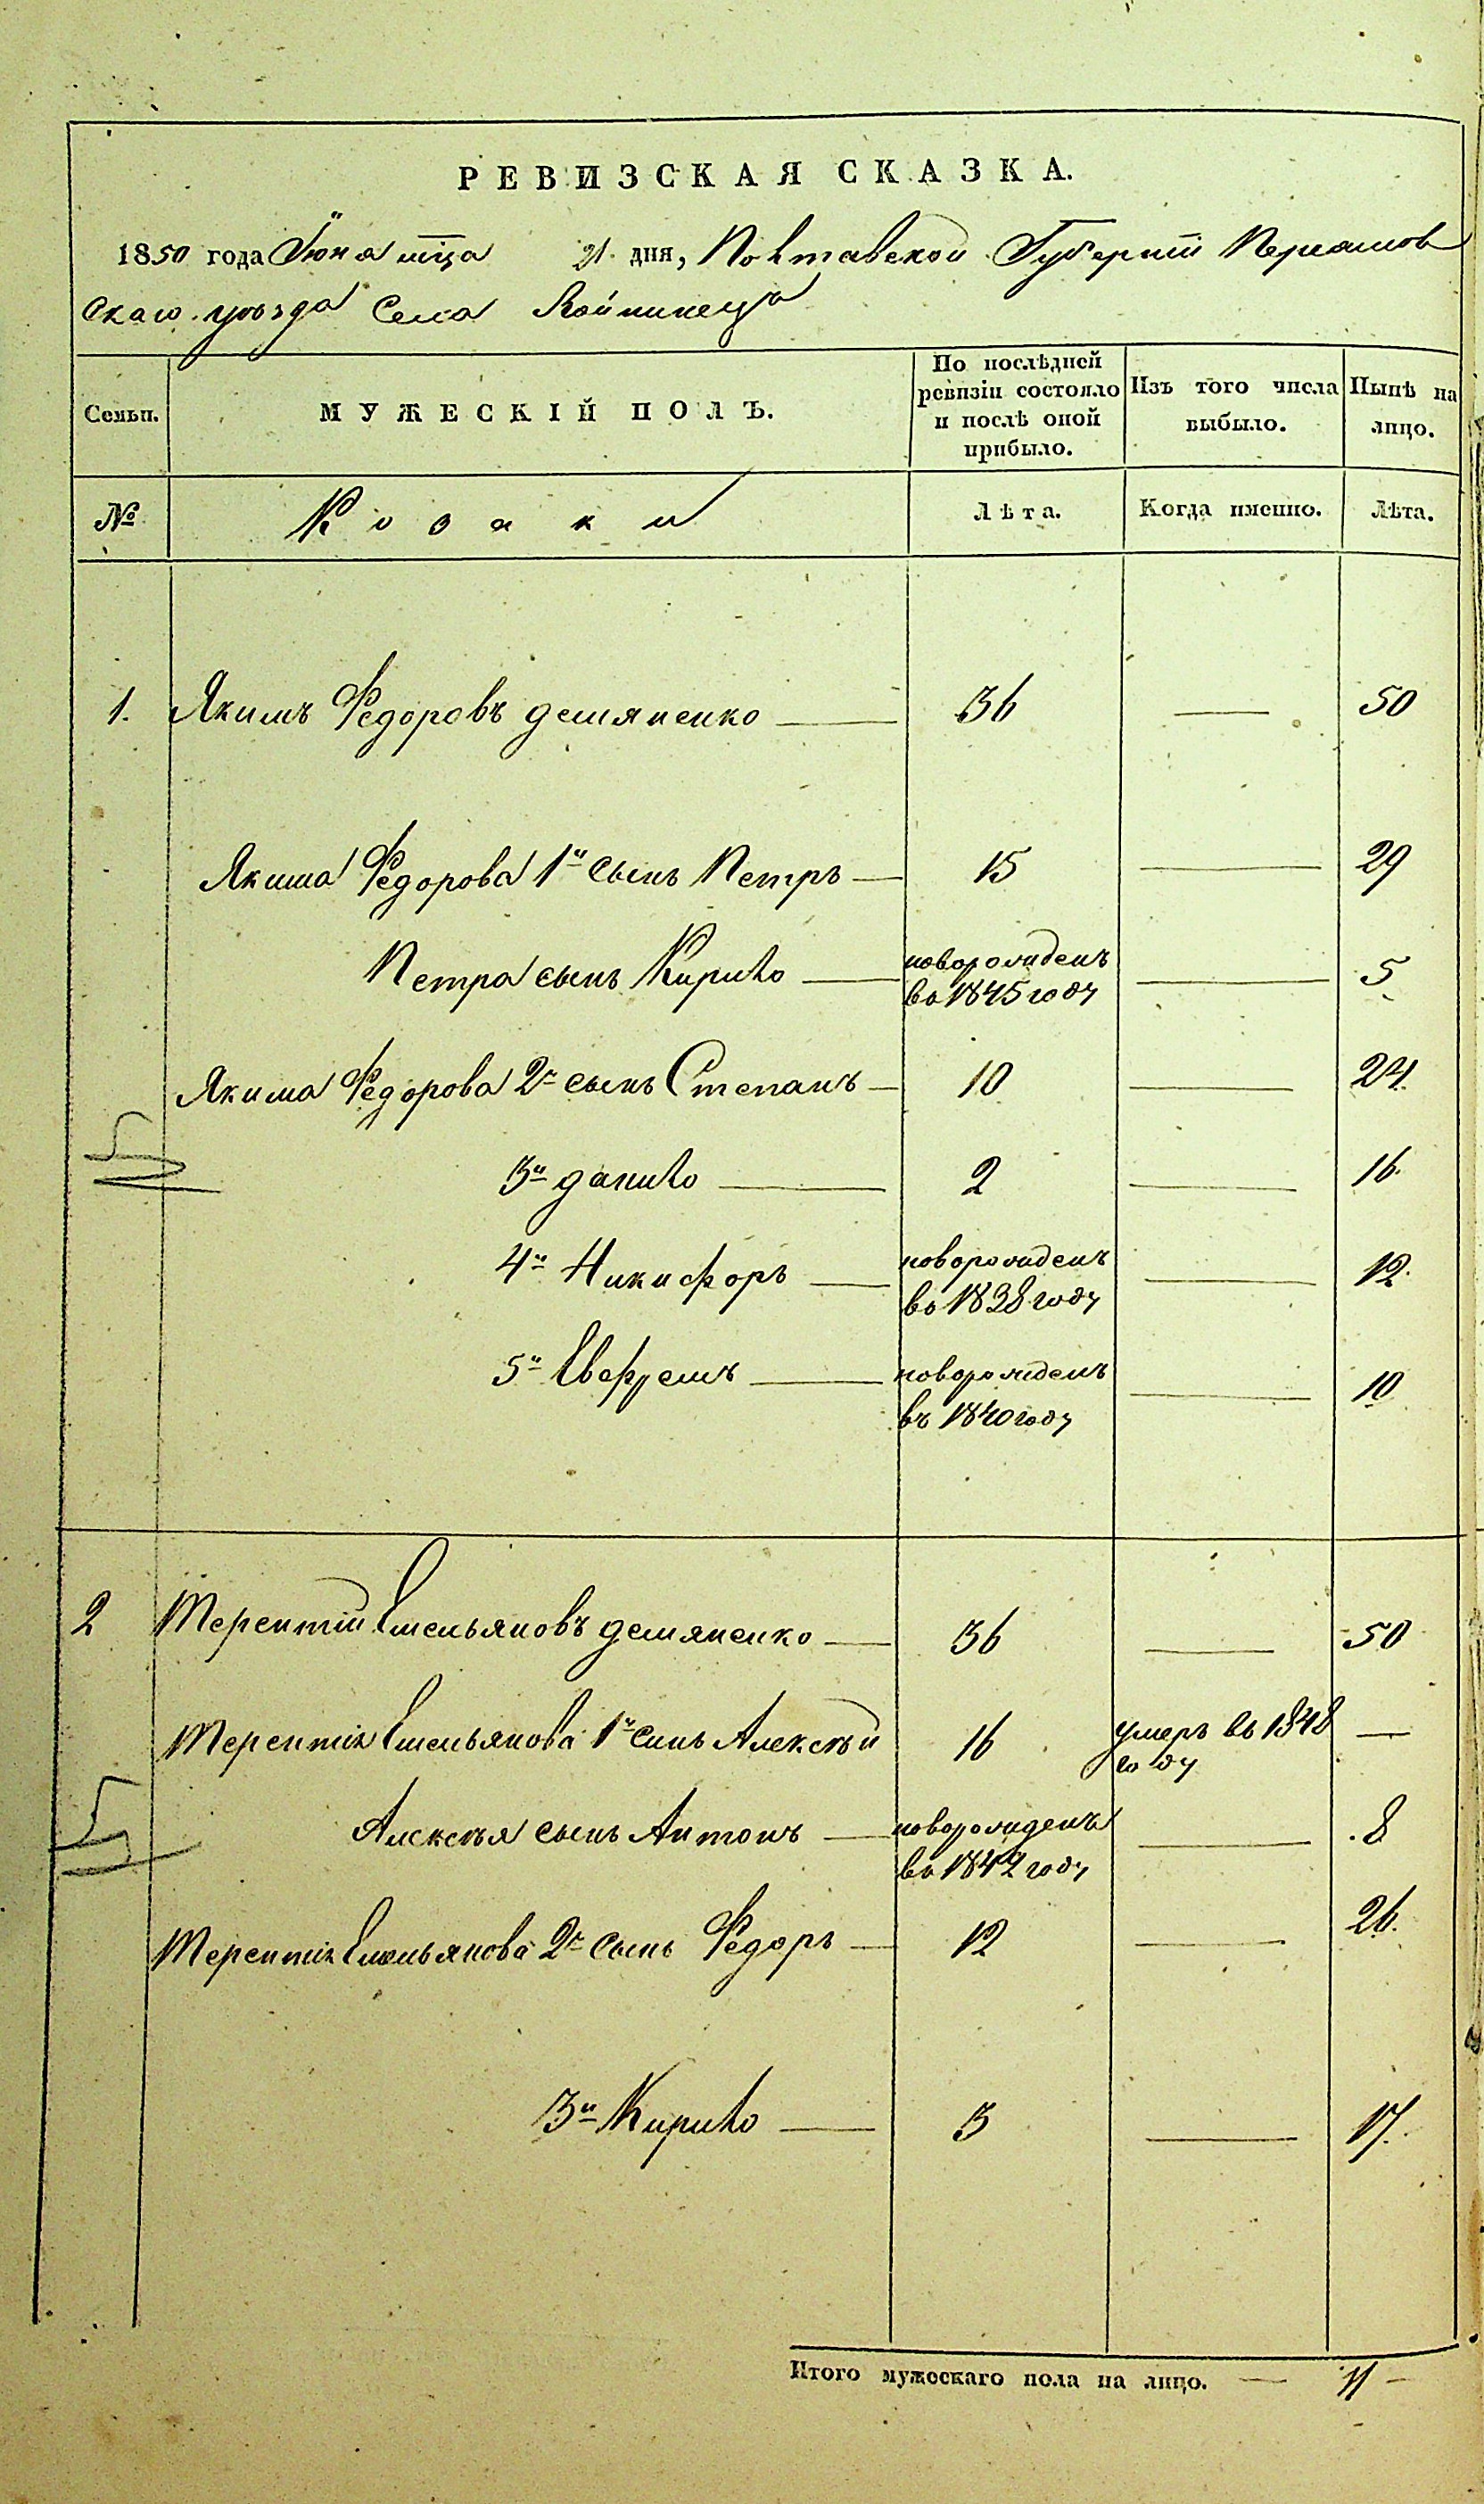 РЕВИЗСКАЯ СКАЗКА.
1850 года Іюня мца 21 дня, Полтавской Губерніи
скаго уѣзда Села Войтинец
Семьи. МУЖЕСКІЙ ПОЛЪ. По послѣдней ревизіи состояло и послѣ оной прибыло. Изъ того числа выбыло. Нынѣ на лицо.
№ Козаки Лѣта. Когда именно. Лѣта.
1. Якимъ Федоровъ демяненко — 36 — 50
Якима Федорова 1й сынъ Петръ — 15 — 29
Петра сынъ Кирило — новорожденъ во 1845 году — 5
Якима Федорова 2й сынъ Степанъ — 10 — 24.
3й данило — 2 — 16.
4й Никифоръ — новорожденъ во 1838 году — 12.
5й Евфремъ — новорожденъ въ 1840 году — 10
2 Терентій Емельяновъ демяненко — 36 — 50
Терентія Емельянова 1й синъ Алексѣй 16 умеръ въ 1848 году —
Алексѣя сынъ Антонъ — новорожденъ во 1842 году — 8
Терентія Емельянова 2й сынъ Федоръ — 12 — 26.
3й Кирило — 3 — 17.
Итого мужескаго пола на лицо. — 11 —